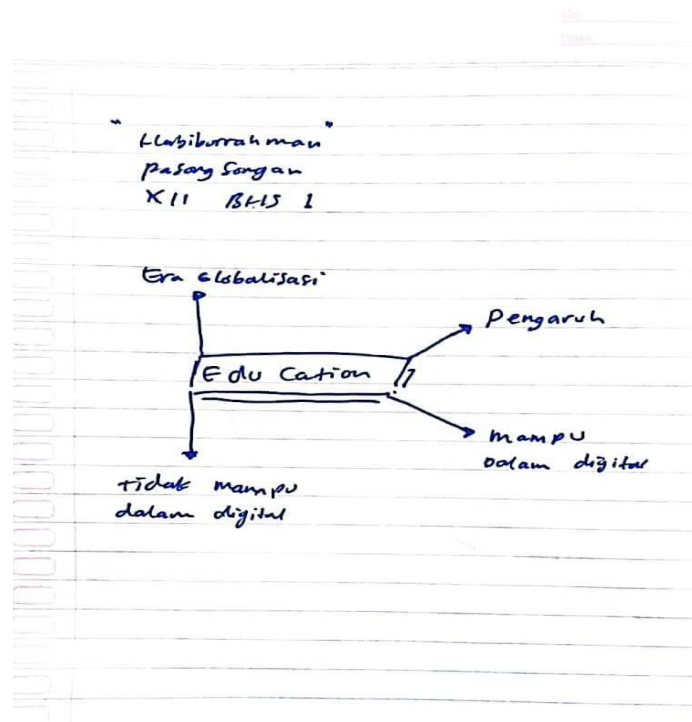 " Habiburrahman "
Pasongsongan
XII BHS 1
Era Globalisasi
Pengaruh
Edu Cation
mampu
dalam digital
tidak mampu
dalam digital